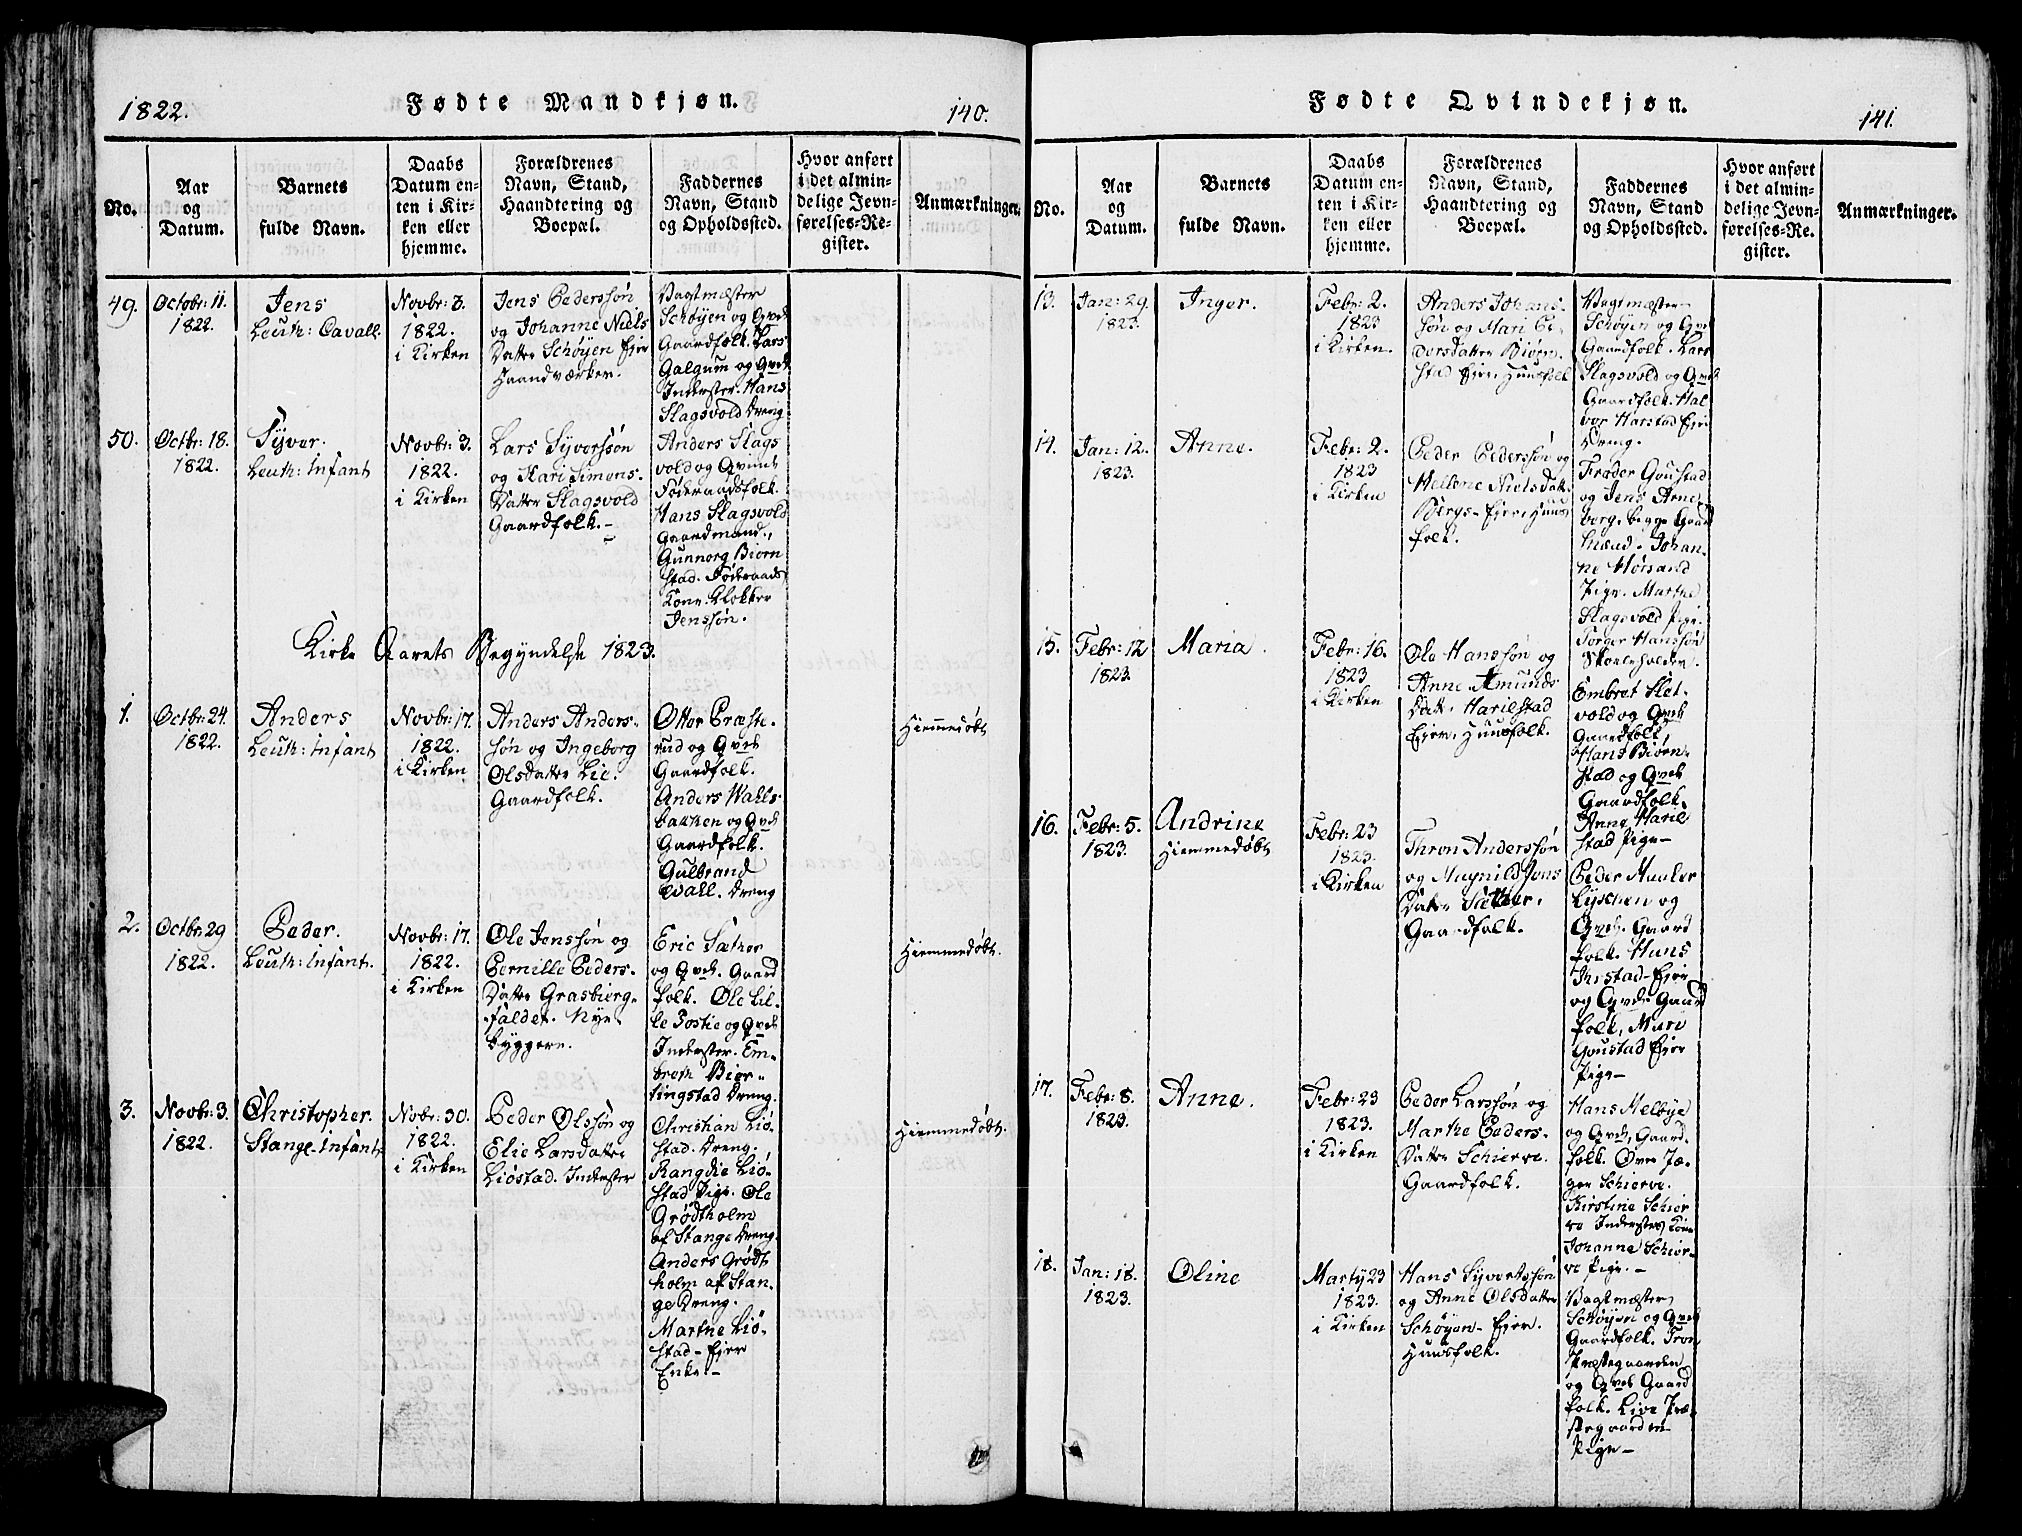 1822.
Fødte Mandkjøn.
140.
No.
Aar
og
Datum.
Barnets
fulde Navn.
Daabs
Datum en-
ten i Kir-
ken eller
hjemme.
Forældrenes
Navn, Stand,
Haandtering og
Boepæl.
Faddernes
Navn, Stand
og Opholdssted.
Hvor anført
i det almin-
delige Jevn-
førelses-Re-
gister.
Anmærkninger.
49.
Octobr: 11.
1822.
Jens
Leuth: Cavall.
Novbr: 3.
1822.
i Kirken
Jens Pederssøn
og Johanne Niels
Datter Schøyen Ejer
Haandværker.
Vagtmæster
Schøyen og Qvde
Gaardfolk. Lars
Galgum og Qvde
Inderster. Hans
Slagsvold Dreng
50.
Octbr: 18.
1822.
Syver.
Leuth: Infant
Novbr: 3.
1822.
i Kirken
Lars Syverssøn
og Kari Simons-
Datter Slagsvold
Gaardfolk.-
Anders Slags
vold og Qvinde
Føderaadsfolk.
Hans Slagsvold
Gaardmand.,
Gunnorg Biørn
stad. Føderaads
Kone. Klokker
Jenssøn.
Kirke Aarets Begyndelse 1823.
1.
Octbr: 24.
1822.
Anders
Leuth: Infant
Novbr: 17.
1822.
i Kirken
Anders Anders-
søn og Ingeborg
Olsdatter Lie.
Gaardfolk.
Otter Præste-
rud og Qvde
Gaardfolk.
Anders Wahls-
bakken og Qvde
Gaardfolk.
Gulbrand
Wall. Dreng
Hiemmedøbt
2.
Octbr: 29
1822.
Peder.
Leuth: Infant.
Novbr: 17.
1822.
i Kirken
Ole Jenssøn og
Pernille Peders-
Datter Grasbierg-
falder. Nye
byggere.
Eric Sæther
og Qvde. Gaard
folk. Ole Lil-
le Postie og Qvde
Inderster. Em-
breth Bier-
tingstad Dreng.
Hiemmedøbt.
3.
Novbr: 3.
1822.
Christopher.
Stange-Infant:
Novbr: 30.
1822.
i Kirken
Peder Olssøn og
Elie Larsdatter
Liøstad. Inderster
Christian Liø-
stad. Dreng.
Rangdie Liø-
stad Pige. Ole
Grødtholm
af Stange Dreng.
Anders Grødt
holm af Stan-
ge Dreng.
Marthe Liø-
stad- Ejer
Enke.-
Hiemmedøbt.
Fødte Qvindekjøn.
141.
No.
Aar
og
Datum.
Barnets
fulde Navn.
Daabs
Datum en-
ten i Kir-
ken eller
hjemme.
Forældrenes
Navn, Stand,
Haandtering og
Boepæl.
Faddernes
Navn, Stand
og Opholdssted.
Hvor anført
i det almin-
delige Jevn-
førelses-Re-
gister.
Anmærkninger.
13.
Jan: 29.
1823.
Inger.
Febr: 2.
1823
i Kirken.
Anders Johans-
søn og Mari Pe-
dersdatter Biørn-
stad Ejer, Huusfolk
Vagtmæster
Schøyen og Qvde
Gaardfolk. Lars
Slagsvold og Qvde
Gaardfolk. Hal
vor Harstad Ejer
Dreng.
14.
Jan: 12.
1823.
Anne.
Febr: 2.
1823
i Kirken
Peder Pederssøn og
Hellene Nielsdatt.
Bergs- Ejer, Huus
folk.
Frøder Goustad
og Jens Arne
borg, begge Gaard
mænd. Johan-
ne Høisand
Pige. Marthe
Slagsvold Pige.
Torger Hanssøn
Skoleholder.
15.
Febr: 12
1823.
Maria.
Febr: 16.
1823
i Kirken
Ole Hanssøn og
Anne Amunds
Datt. Harilstad
Ejer, Huusfolk.
Embret Slet-
vold og Qvde
Gaardfolk,
Hans Biørn-
stad og Qvde
Gaardfolk.
Anne Haril
stad Pige-
16.
Febr: 5.
1823.
Andrine
Hiemmedøbt
Febr: 23
1823.
i Kirken
Thron Anderssøn
og Magnild Jons
Datter Sætter.
Gaardfolk.
Peder
Lyschen og
Qvde. Gaard
folk. Hans
Thestad-Ejer
og Qvde Gaard
folk, Mari
Goustad Ejer
Pige-
17.
Febr: 8.
1823.
Anne.
Febr: 23
1823.
i Kirken
Peder Larssøn og
Marthe Peders-
Datter Schierve.
Gaardfolk.
Hans Melbye
og Qvde, Gaard-
folk. Over Jæ-
ger Schierve.
Kirstine Schier
ve Inderster Kone
Johanne Schier-
ve Pige.-
18.
Jan: 18.
1823.
Oline
Marty 23
1823.
i Kirken
Hans Syvertssøn
og Anne Olsdatter
Schøyen- Ejer.
Huusfolk.
Vagtmæster
Schøyen og Qvde
Gaardfolk. Tron
Præstegaarden
og Qvde Gaard
folk. Live Præ-
stegaarden
Pige-